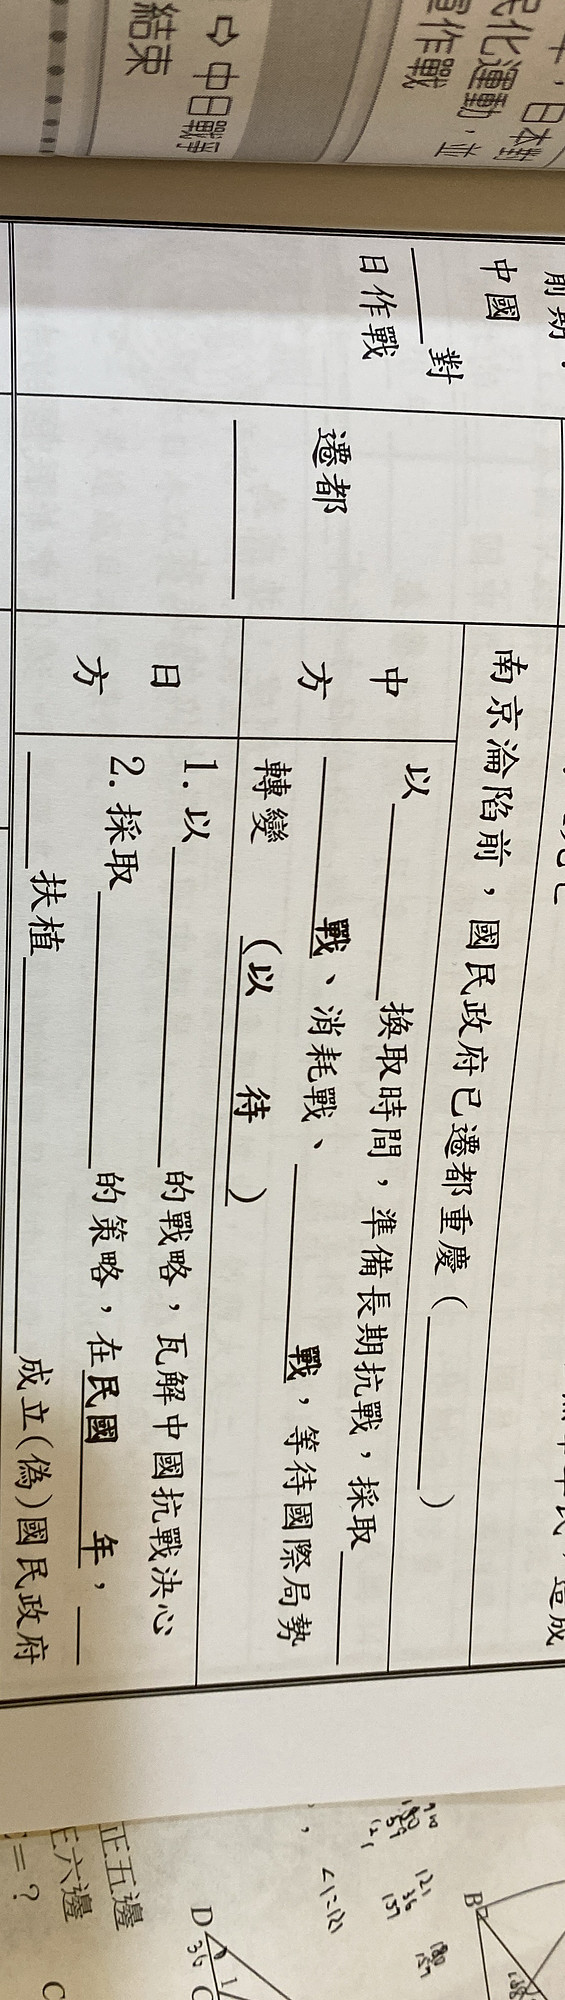 日本對
民化運動，並
作戰
⇨ 中日戰爭
結束
前期：
中國
＿＿＿對
日作戰
遷都
＿＿＿＿＿
南京淪陷前，國民政府已遷都重慶（＿＿＿＿＿）
中方
以＿＿＿＿＿換取時間，準備長期抗戰，採取＿＿＿
＿＿＿＿＿戰、消耗戰、＿＿＿＿＿戰，等待國際局勢
轉變＿＿＿（以　待　）
日方
1. 以＿＿＿＿＿＿＿＿的戰略，瓦解中國抗戰決心
2. 採取＿＿＿＿＿＿＿的策略，在民國　年，＿＿
＿＿＿扶植＿＿＿＿＿＿＿＿＿成立(偽)國民政府
造成
正五邊
正六邊
= ？
∠1=121
121
36
157
180
157
B
D
36
1
C
C